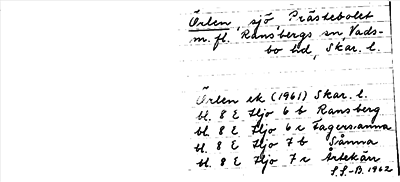 Örlen, sjö Prästebolet
m. fl. Ransbergs sn, Vads-
bo hd, Skar. l.
Örlen ek (1961) Skar. l.
bl. 8 E Hjo 6 b Ransberg
bl. 8 E Hjo 6 c Fagersanna
bl. 8 E Hjo 7 b Sånna
bl. 8 E Hjo 7 c Ärtekärr
S.S-B. 1962